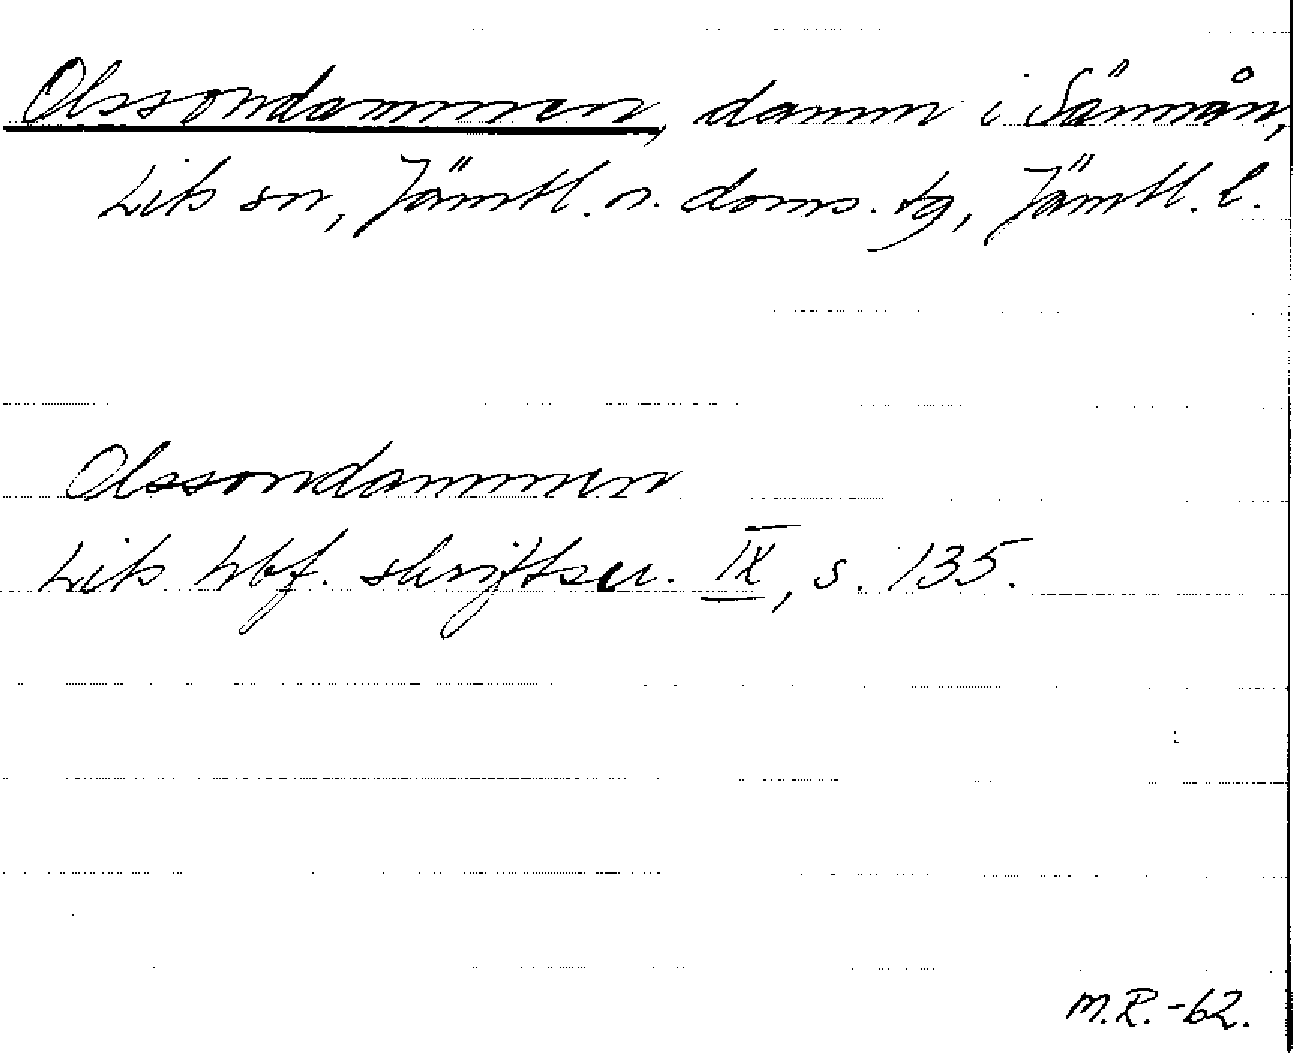 Olssondammen, damm i Sännån,
Lits sn, Jämtl. n. doms. tg, Jämtl. l.
Olssondammen
Lits hbf. skriftser. IX, s. 135.
M.R.-62.